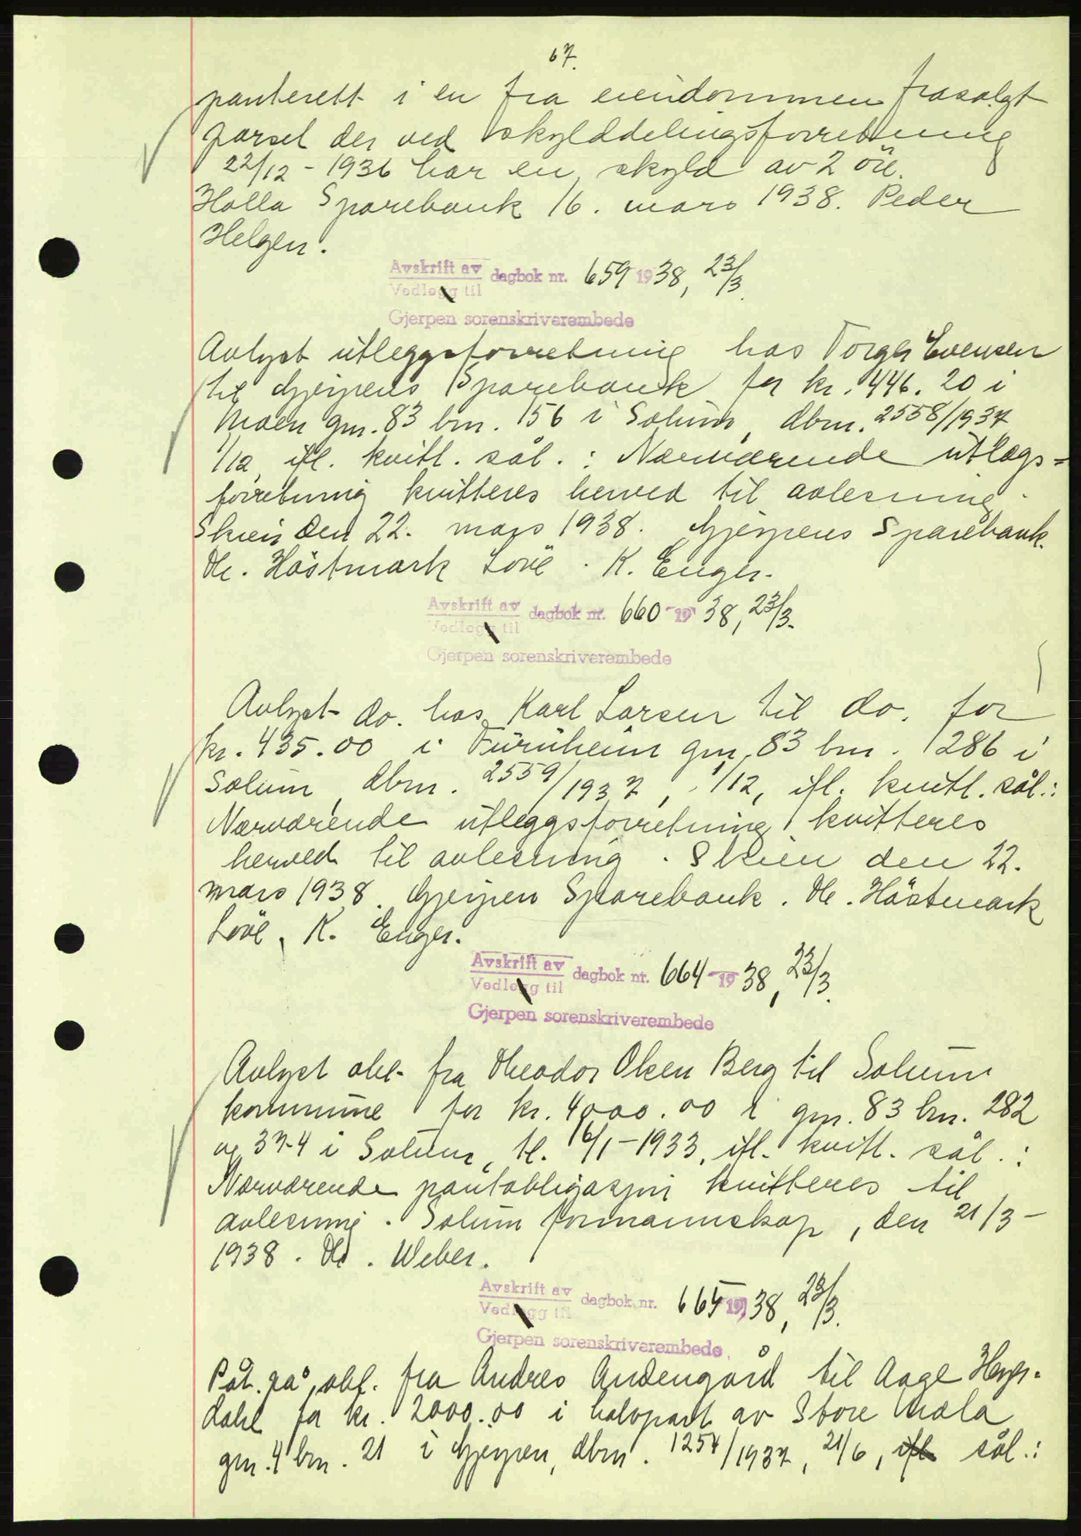 67.
panterett i en fra eiendommen frasolgt
parsel der ved skylddelingsforretning
22/12 - 1936 har en skyld av 2 öre.
Holla Sparebank 16. mars 1938. Peder
Helgen.
Avskrift av dagbok nr. 659 1938, 23/3.
Vedlegg til
Gjerpen sorenskriverembede
Avlyst utleggsforretning hos Torger Evensen
til Gjerpens Sparebank for kr. 446.20 i
Moen gnr. 83 bnr. 156 i Solum, dbnr. 2558/1937
1/12, ifl. kvitt. sål.: Nærværende utlegs-
forretning kvitteres herved til avlesning.
Skien den 22. mars 1938. Gjerpens Sparebank.
Höstmark Löve. K. Enger.
Avskrift av dagbok nr. 660 - 1938, 23/3.
Vedlegg til
Gjerpen sorenskriverembede
Avlyst do. hos Karl Larsen til do. for
kr. 435.00 i Furuheim gnr. 83 bnr. 286 i
Solum, dbnr. 2559/1937, 1/12, ifl. kvitt. sål.:
Nærværende utleggsforretning kvitteres
herved til avlesning. Skien den 22.
mars 1938. Gjerpen Sparebank. Höstmark
Löve, K. Enger.
Avskrift av dagbok nr. 664 - 1938, 23/3.
Vedlegg til
Gjerpen sorenskriverembede
Avlyst obl. fra Theodor Olsen Berg til Solum
kommune for kr. 4000.00 i gnr. 83 bnr. 282
og 37-4 i Solum, tl. 16/1-1933, ifl. kvitt. sål.:
Nærværende pantobligasjon kvitteres til
avlesning. Solum formannskap, den 21/3-
1938. Weber.
Avskrift av dagbok nr. 665 1938, 23/3.
Vedlegg til
Gjerpen sorenskriverembede
Påt. på obl. fra Andres Andengård til Aage
dahl for kr. 2000.00 i halvpart av Store Mæla
gnr. 4 bnr. 21 i Gjerpen, dbnr. 1254/1937, 21/6, ifl. sål.: